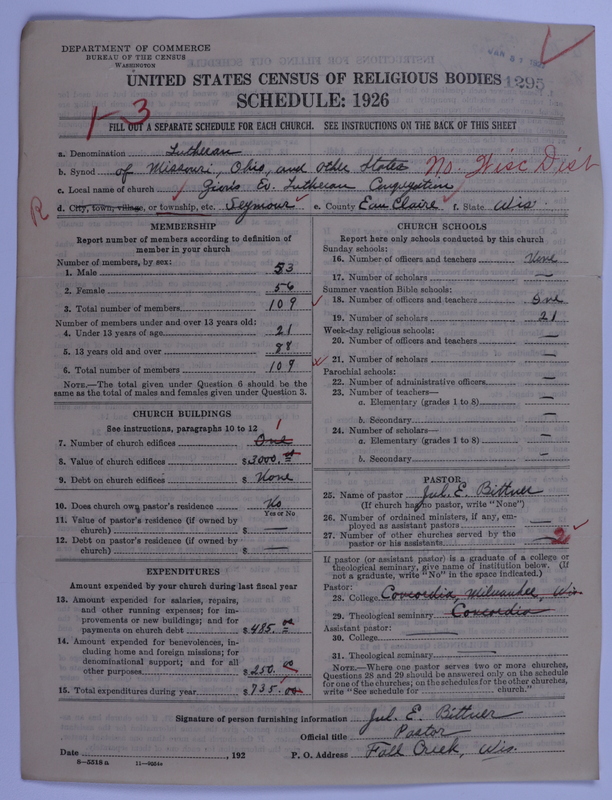 DEPARTMENT OF COMMERCE
BUREAU OF THE CENSUS
WASHINGTON
UNITED STATES CENSUS OF RELIGIOUS BODIES
1295
SCHEDULE: 1926
1-3
FILL OUT A SEPARATE SCHEDULE FOR EACH CHURCH. SEE INSTRUCTIONS ON THE BACK OF THIS SHEET
a. Denomination Lutheran
b. Synod of Missouri, Ohio, and other States No. Wisc Dist
c. Local name of church Zions Ev. Lutheran Congregation
R
d. City, town, village, or township, etc. Seymour e. County Eau Claire f. State Wis.
MEMBERSHIP
Report number of members according to definition of member in your church
Number of members, by sex:
1. Male 53
2. Female 56
3. Total number of members 109
Number of members under and over 13 years old:
4. Under 13 years of age 21
5. 13 years old and over 88
6. Total number of members 109
NOTE.—The total given under Question 6 should be the
same as the total of males and females given under Question 3.
CHURCH BUILDINGS
See instructions, paragraphs 10 to 12
1
7. Number of church edifices One
8. Value of church edifices $3000.00
9. Debt on church edifices $ None
10. Does church own pastor's residence? No
Yes or No
11. Value of pastor's residence (if owned by
church) $ —
12. Debt on pastor's residence (if owned by
church) $ —
EXPENDITURES
Amount expended by your church during last fiscal year
13. Amount expended for salaries, repairs,
and other running expenses; for im-
provements or new buildings; and for
payments on church debt $485.00
14. Amount expended for benevolences, in-
cluding home and foreign missions; for
denominational support; and for all
other purposes $250.00
15. Total expenditures during year $735.00
CHURCH SCHOOLS
Report here only schools conducted by this church
Sunday schools:
16. Number of officers and teachers None
17. Number of scholars —
Summer vacation Bible schools:
18. Number of officers and teachers One
19. Number of scholars 21
Week-day religious schools:
20. Number of officers and teachers —
21. Number of scholars —
Parochial schools:
22. Number of administrative officers —
23. Number of teachers—
a. Elementary (grades 1 to 8) —
b. Secondary —
24. Number of scholars—
a. Elementary (grades 1 to 8) —
b. Secondary —
PASTOR
25. Name of pastor Jul. E. Bittner
(If church has no pastor, write "None")
26. Number of ordained ministers, if any, em-
ployed as assistant pastors —
27. Number of other churches served by the
pastor or his assistants 2
If pastor (or assistant pastor) is a graduate of a college or
theological seminary, give name of institution below. (If
not a graduate, write "No" in the space indicated.)
Pastor:
28. College Concordia, Milwaukee, Wis.
29. Theological seminary Concordia
Assistant pastor:
30. College —
31. Theological seminary —
NOTE.—Where one pastor serves two or more churches,
Questions 28 and 29 should be answered only on the schedule
for one of the churches; on the schedules for the other churches,
write "See schedule for church."
Signature of person furnishing information Jul. E. Bittner
Official title Pastor
Date , 192 P. O. Address Fall Creek, Wis.
8—5518a 11—9054a